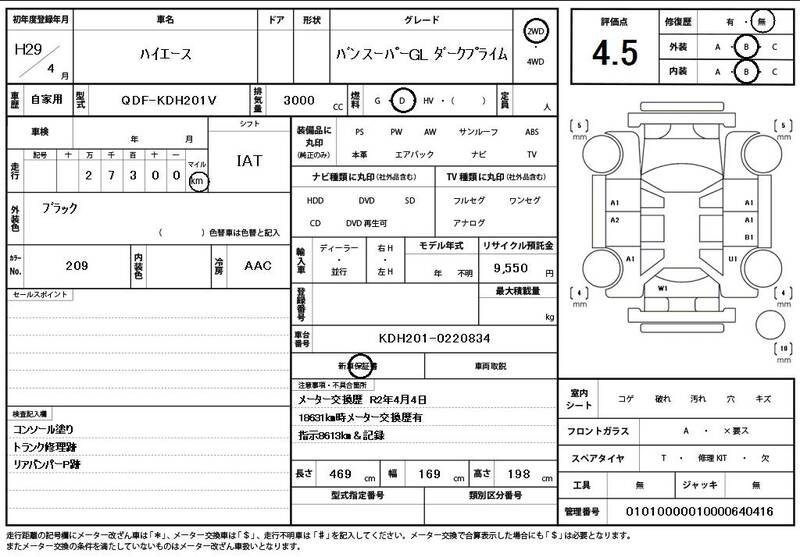 初年度登録年月 車名 ドア 形状 グレード
H29／4月 ハイエース バンスーパーGL ダークプライム 2WD ・ 4WD
評価点 4.5
修復歴 有 ・ 無
外装 A ・ B ・ C
内装 A ・ B ・ C
車歴 自家用 型式 QDF-KDH201V 排気量 3000 CC 燃料 G ・ D ・ HV ・（ ） 定員 人
車検 年 月 シフト IAT
走行 記号 十 万 千 百 十 一 マイル km
2 7 3 0 0
外装色 ブラック
（ ）色替車は色替と記入
カラーNo. 209 内装色 冷房 AAC
装備品に丸印（純正のみ）
PS PW AW サンルーフ ABS
本革 エアバック ナビ TV
ナビ種類に丸印（社外品含む） TV種類に丸印（社外品含む）
HDD DVD SD フルセグ ワンセグ
CD DVD再生可 アナログ
輸入車 ディーラー ・ 並行 右H ・ 左H モデル年式 年 不明 リサイクル預託金 9,550 円
登録番号 最大積載量 kg
車台番号 KDH201-0220834
新車保証書 車両取説
セールスポイント
注意事項・不具合箇所
メーター交換歴 R2年4月4日
18631km時メーター交換歴有
指示8613km＆記録
検査記入欄
コンソール塗り
トランク修理跡
リアバンパーP跡
長さ 469 cm 幅 169 cm 高さ 198 cm
型式指定番号 類別区分番号
[5] mm [5] mm
A1 A1
A2 A1
B1
A1 U1
W1
[4] mm [4] mm
[10] mm
室内シート コゲ 破れ 汚れ 穴 キズ
フロントガラス A ・ ×要ス
スペアタイヤ T ・ 修理KIT ・ 欠
工具 無 ジャッキ 無
管理番号 01010000010000640416
走行距離の記号欄にメーター改ざん車は「＊」、メーター交換車は「＄」、走行不明車は「＃」を記入してください。メーター交換で合算表示した場合にも「＄」は必要となります。
またメーター交換の条件を満たしていないものはメーター改ざん車扱いとなります。